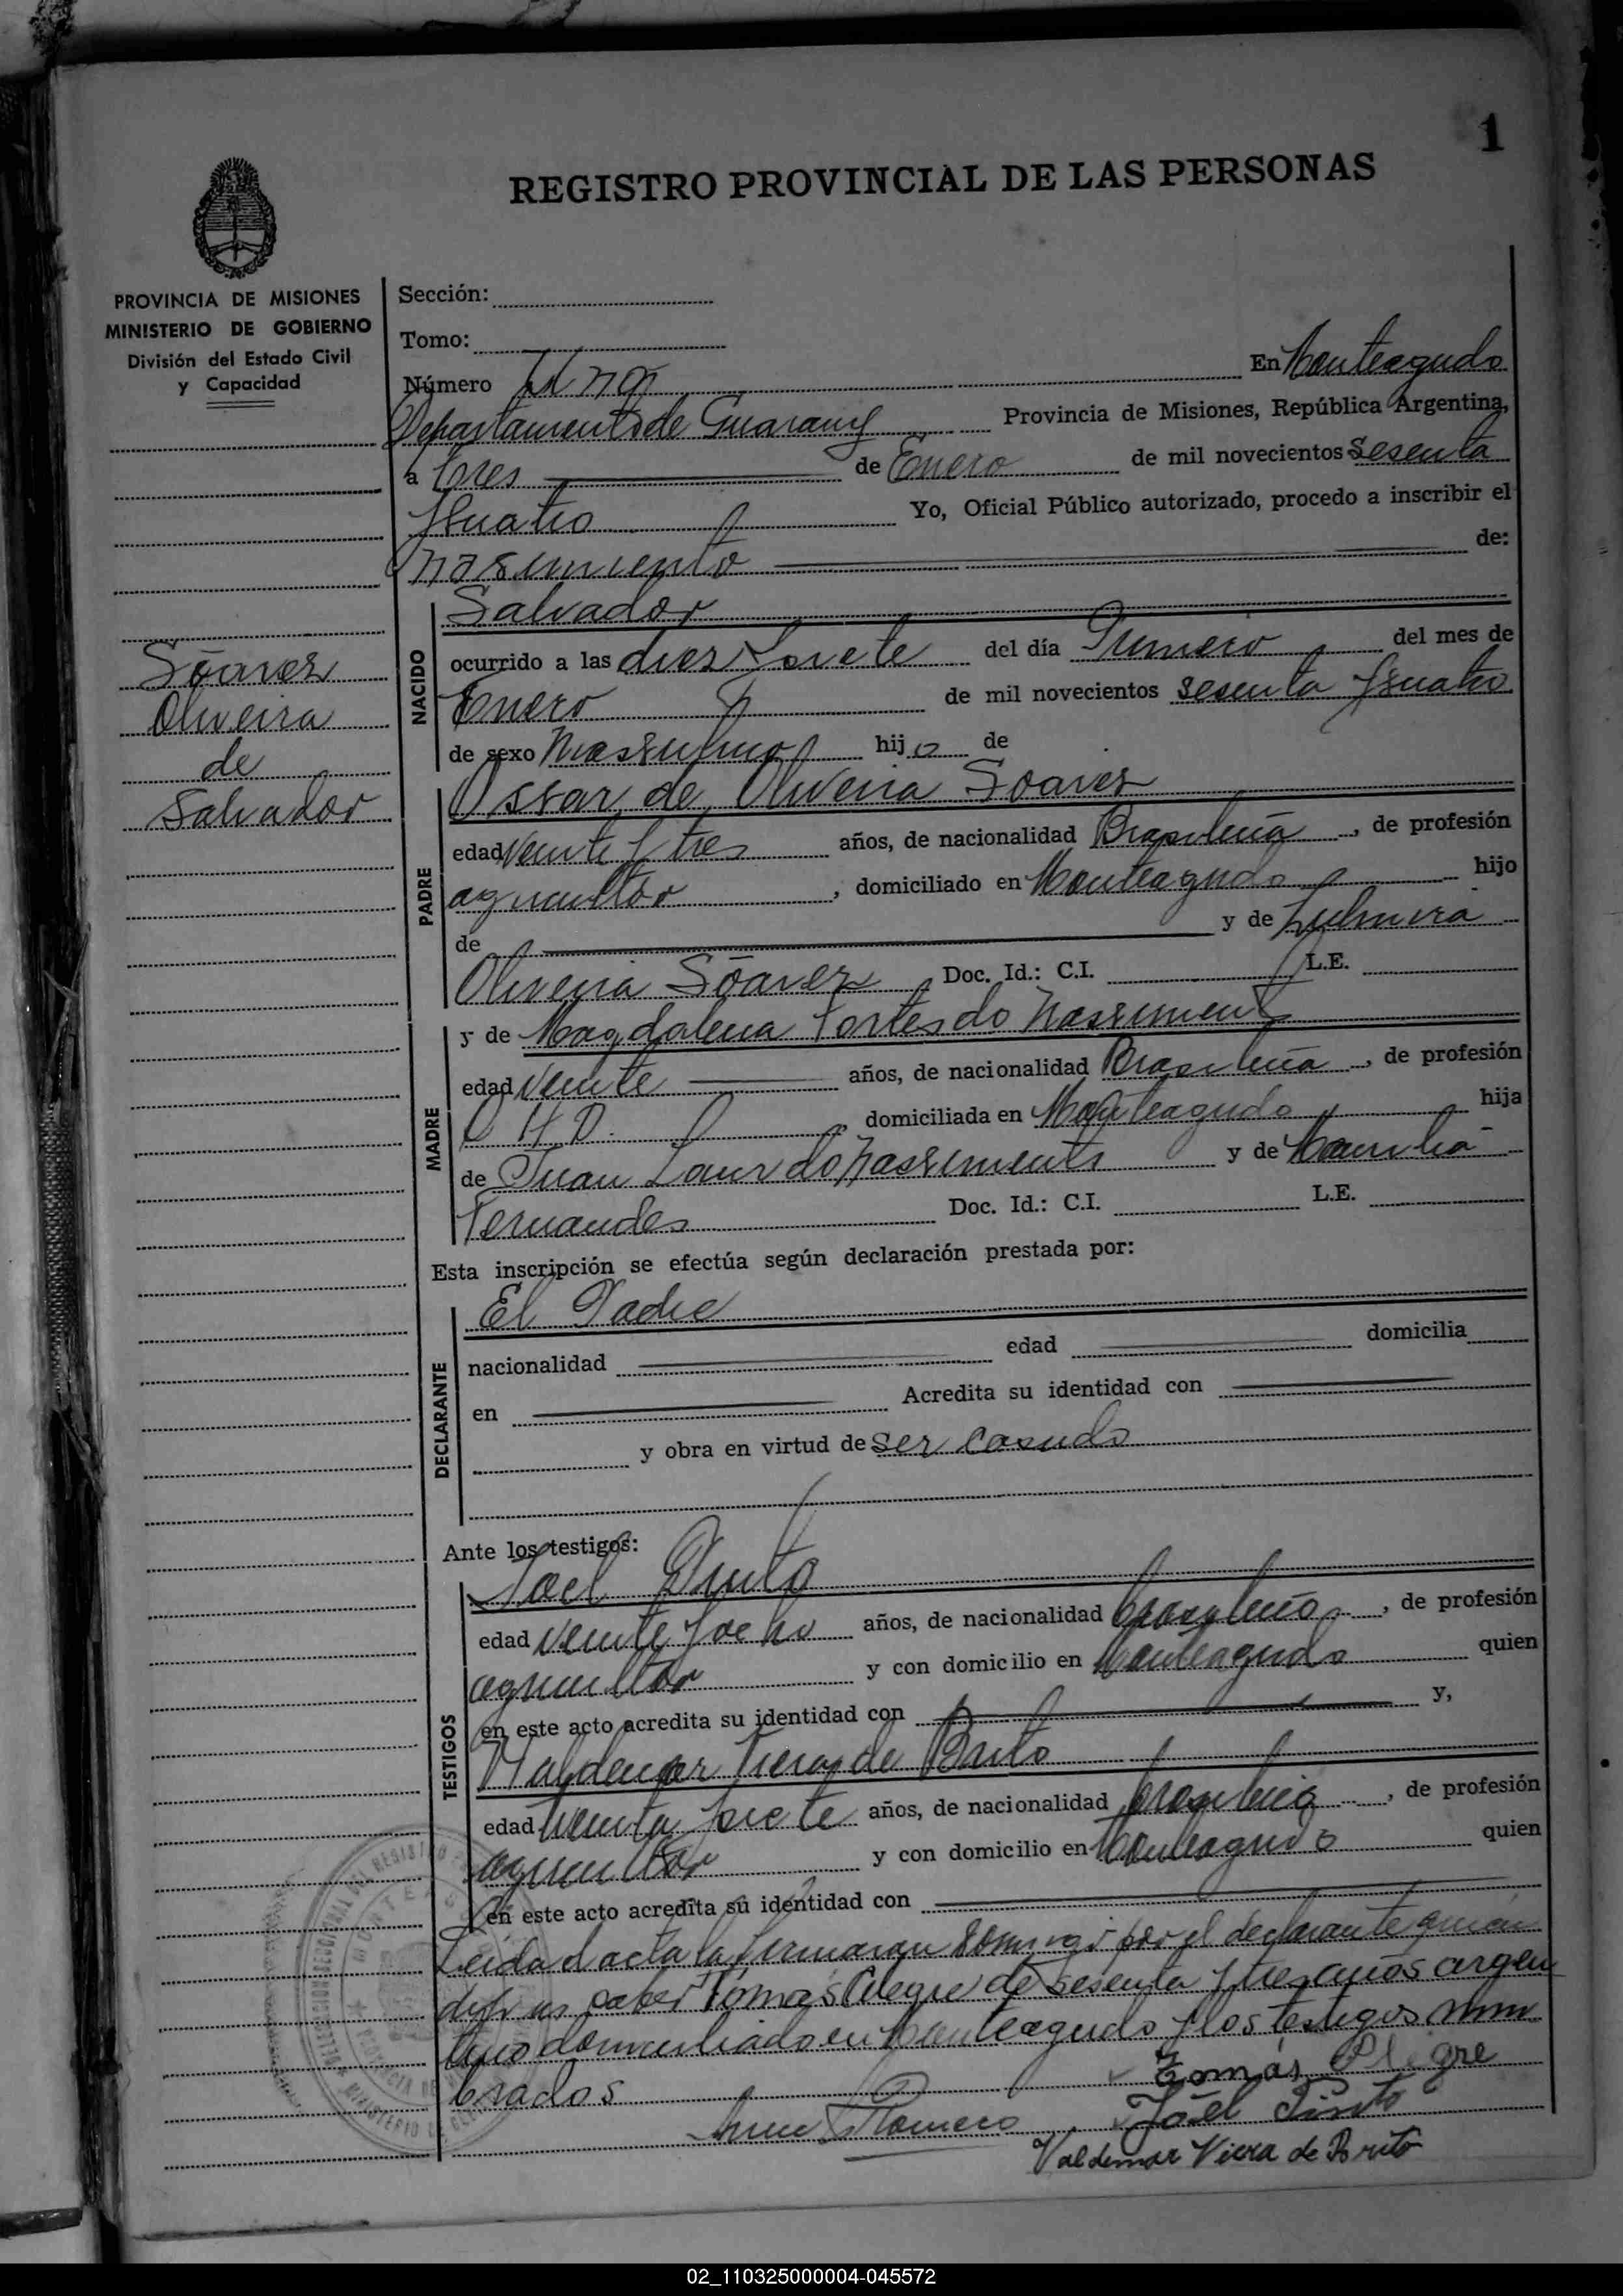 1
REGISTRO PROVINCIAL DE LAS PERSONAS
PROVINCIA DE MISIONES
MINISTERIO DE GOBIERNO
División del Estado Civil
y Capacidad
Sección:
Tomo:
Número Uno En Monteagudo
Departamento de Guarany Provincia de Misiones, República Argentina,
a tres de Enero de mil novecientos sesenta
y cuatro Yo, Oficial Público autorizado, procedo a inscribir el
nacimiento de:
Sōares
Oliveira
de
Salvador
NACIDO
Salvador
ocurrido a las diez y siete del día Primero del mes de
Enero de mil novecientos sesenta y cuatro
de sexo Masculino hijo de
PADRE
Oscar de Oliveira Soares
edad veinte y tres años, de nacionalidad Brasileña, de profesión
agricultor, domiciliado en Monteagudo hijo
de y de
Oliveira Sōares Doc. Id.: C.I. L.E.
MADRE
y de Magdalena Fortes do Nascimento
edad veinte años, de nacionalidad Brasileña, de profesión
Q H D. domiciliada en Monteagudo hija
de Juan do Nascimento y de
Fernandes Doc. Id.: C.I. L.E.
Esta inscripción se efectúa según declaración prestada por:
DECLARANTE
El Padre
nacionalidad edad domicilia
en Acredita su identidad con
y obra en virtud de ser casado
Ante los testigos:
TESTIGOS
Joel Pinto
edad veinte y ocho años, de nacionalidad brasileño, de profesión
agricultor y con domicilio en Monteagudo quien
en este acto acredita su identidad con y,
Valdemar Viera de Brito
edad veinte y siete años, de nacionalidad brasileña, de profesión
agricultor y con domicilio en Monteagudo quien
en este acto acredita su identidad con
Leida el acta la firmaron conmigo por el declarante quien
dijo no saber Tomás Alegre de sesenta y tres años argen
tino domiciliado en Monteagudo y los testigos nom
brados
Tomás Alegre
Romero Jōel Pinto
Valdemar Viera de Brito
02_110325000004-045572